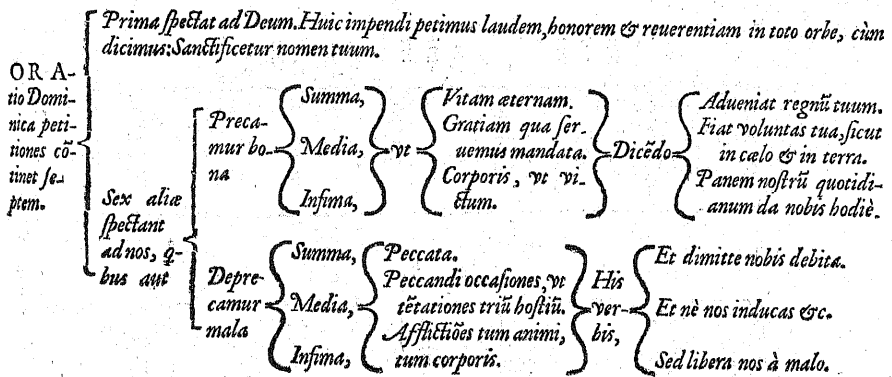 Prima ſpectat ad Deum. Huic impendi petimus laudem, honorem & reuerentiam in toto orbe, cùm
dicimus: Sanctificetur nomen tuum.
ORA-
tio Domi-
nica peti-
tiones cõ-
tinet ſe-
ptem.
Sex aliæ
ſpectant
ad nos, q-
bus aut
Preca-
mur bo-
na
Summa,
Media,
Infima,
vt
Vitam æternam.
Gratiam qua ſer-
uemus mandata.
Corporis, vt vi-
ctum.
Dicẽdo
Adueniat regnũ tuum.
Fiat voluntas tua, ſicut
in cælo & in terra.
Panem noſtrũ quotidi-
anum da nobis hodiè.
Depre-
camur
mala
Summa,
Media,
Infima,
Peccata.
Peccandi occaſiones, vt
tẽtationes triũ hoſtiũ.
Afflictiões tum animi,
tum corporis.
His
ver-
bis,
Et dimitte nobis debita.
Et nè nos inducas &c.
Sed libera nos à malo.